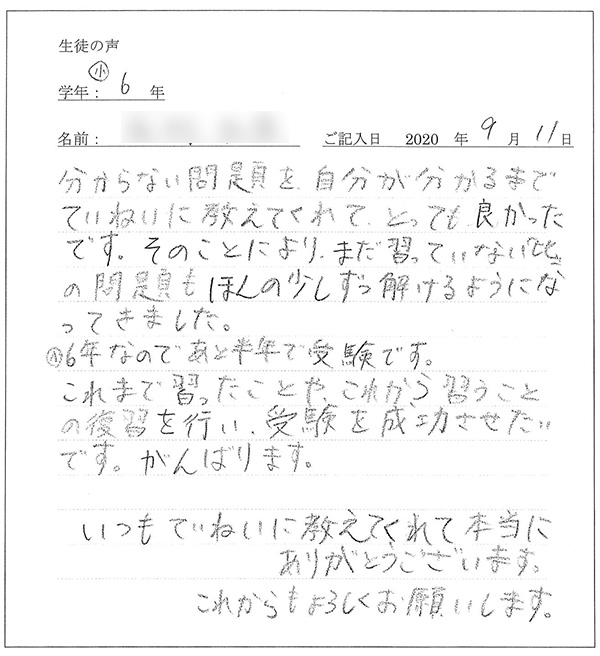 生徒の声
学年： ㊤小 6 年
名前：
ご記入日 2020 年 9 月 11 日
分からない問題を、自分が分かるまで
ていねいに教えてくれて、とっても良かった
です。そのことにより、まだ習っていない比
の問題もほんの少しずつ解けるようにな
ってきました。
小6年なのであと半年で受験です。
これまで習ったことや、これから習うこと
の復習を行い、受験を成功させたい
です。がんばります。
いつもていねいに教えてくれて本当に
ありがとうございます。
これからもよろしくお願いします。